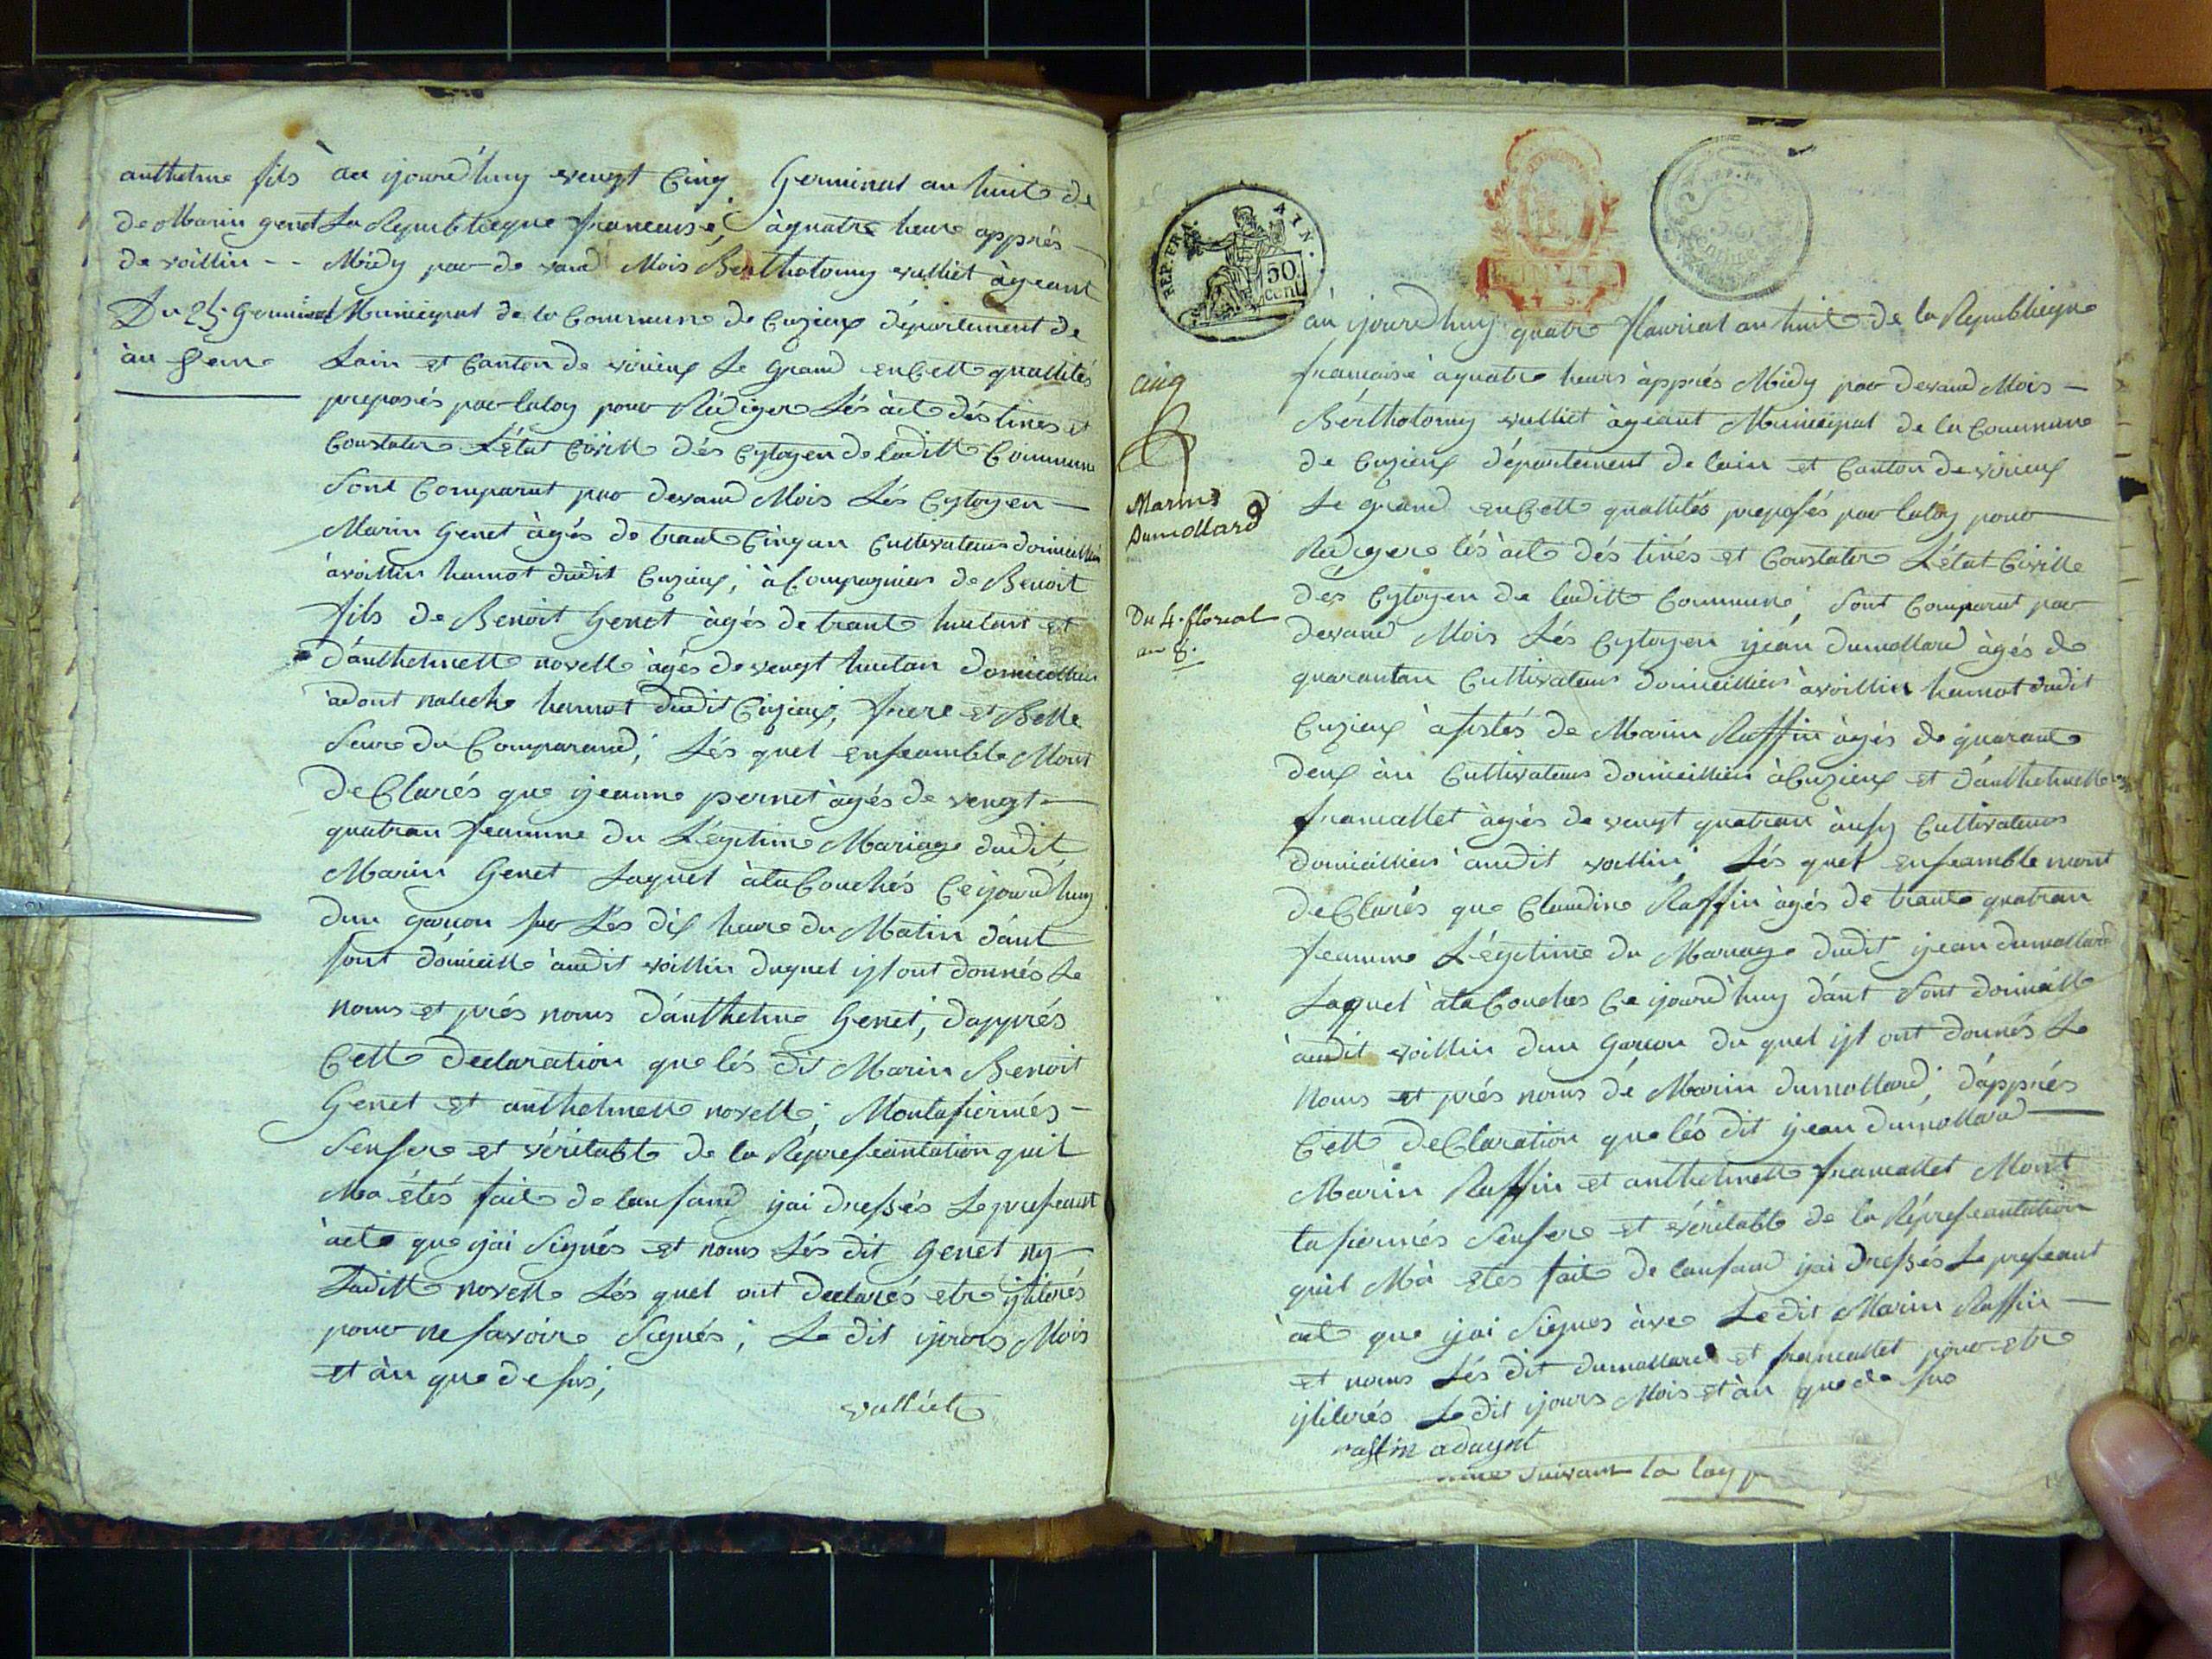 anthelme fils
de Marin genet
de voillin - -
Du 25. Germinal
àn 8eme
au ijourd'huy vengt Cinq Germinal an huit de
La Republieque francaise, à quatre heure apprés
Midy par de vand Mois Bertholomy vulliet àgeant
Municipal de la Commune de Cuzieux département de
Lain et Canton de virieux Le Grand en Cette quallités
preposés par laloy pour Rédiger Lés àcte déstinés et
Constater L'état Civille dés Cytoyen de laditte Commune
Sont Comparut par devand Mois Lés Cytoyen —
Marin Genet àgés de trante Cinq an Cultivateur domicilliés
àvoillin hamot dudit Cuzieux, àCompagnies de Benoit
fils de Benoit Genet àgés de trante huitant et
d'anthelmette novelle àgés de vengt huitan domicillies
adont hamot dudit Cuzieux, frere et Belle
Seure du Comparand; Lés quel enseamble Mont
DeClarés que ijeanne pernet àgés de vengt —
quatran feamme du Légitime Mariage dudit
Marin Genet Laquel àlaCouchés Ce ijourd'huy
dun garcon sur Les dix heure du Matin dànt
sont domicille àudit voillin duquel ist ont donnés Le
noms et prés noms d'anthelme Genet, dapprés
Cette declaration que lés dit Marin Benoit
Genet et anthelmette novelle, Montafiermés —
Sensere et véritable de la Represeantation quil
Ma étés faite de lansand ijai dressés Le preseant
àcte que ijai Signés et nonts Lés dit Genet ny —
Laditte novelle Lés quel ont declarés etre ijlilerés
pour ne savoire Signés; Le dit ijours Mois
et àn que desus;
vulliet
REP. FRA. AIN.
50 cent.
cinq
Marin
Dumollard
Du 4. floreal
an 8.
àu ijourdhuy quatre flaurial an huit de la Republieque
francaise à quatre heurs àpprés Midy par devand Mois —
Bérthotomy vulliet àgeant Municipal de la Commune
de Cuzieux département de lain et Canton de virieux
Le grand en Cette quallités preposés par laloy pour —
Rédigere lés àcte dés tinés et Constater L'état Civille
dés Cytoyen de laditte Commune, Sont Comparut par
devand Mois Lés Cytoyen ijean dumollard àgés de
quarantan Cultivateur domicilliés àvoillin hamot dudit
Cuzieux àsistés de Marin Raffin àgés de quarante
deux àn Cultivateur domicilliés àCuzieux et d'anthelmette
francallet àgés de vengt quatran àussy Cultivateur
domicilliés àudit voillin; Lés quel enseamble mont
DeClarés que Claudine Raffin àgés de trante quatran
feamme Légitime du Mariage dudit ijean dumollard
Laquel àlaCouches Ce ijourd'huy dànt sont domicille
àudit voillin dun Garcon du quel ist ont donnés Le
Noms et prés noms de Marin dumollard, dàpprés
Cette deClaration que lés dit ijean dumollard —
Marin Raffin et anthelmette francallet Mont
tafiermés Sensere et véritable de la Répréseantation
quil Mà etes faite de lansand ijai Dressés Le preseant
àcte que ijai Signes àvec Ledit Marin Raffin —
et nonts Lés dit dumollard et francallet pour etre
ijlilerés Le dit ijours Mois et àn que de sus
raffin adaynt
suivant la loy